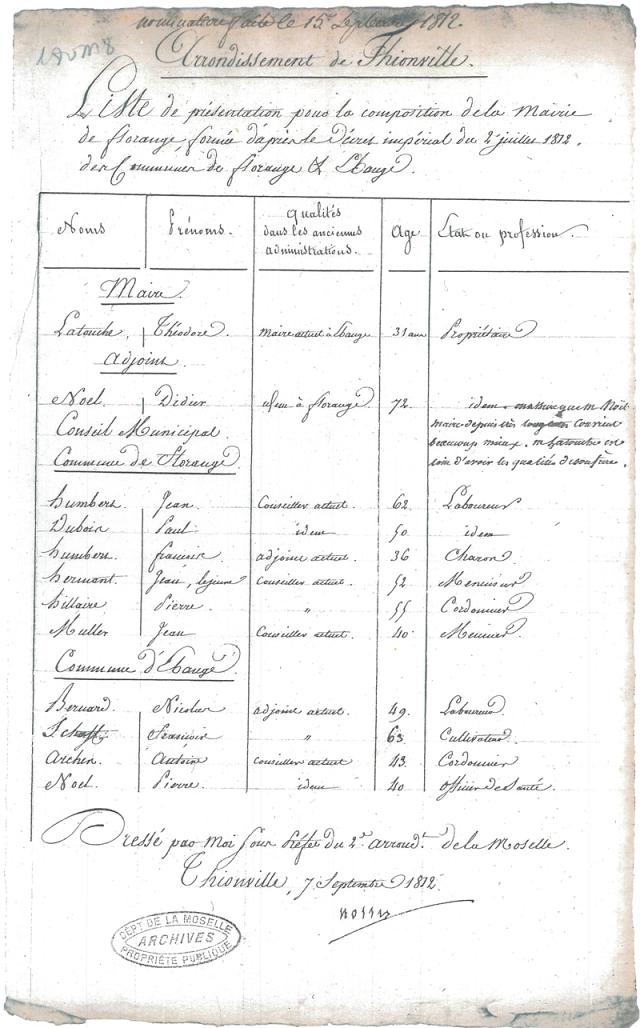 nomination faite le 15 Septembre 1812.
Arrondissement de Thionville.
Liste de présentation pour la composition de la Mairie
de florange, formée d'après le Décret impérial du 2 juillet 1812.
des Communes de florange & Ebange.
Noms Prénoms. qualités dans les anciennes administrations. Age Etat ou profession.
Maire.
Latouche. Théodore. Maire actuel à Ebange 31 ans Propriétaire
Adjoint
Noel. Didier idem à florange 72 idem. que M. Noel
Conseil Municipal. maire depuis très longtems convient
beaucoup mieux. M. Latouche est
Commune de Florange loin d'avoir les qualités de
humbert. Jean. Conseiller actuel. 62 Laboureur
Dubois Paul idem 50 idem
humbert. francois. adjoint actuel. 36 Charon
hermant. Jean, lejeune Conseiller actuel. 52 Menuisier
hillaire Pierre. " 55 Cordonnier
Muller Jean Conseiller actuel. 40 Meunier
Commune d'Ebange.
Bernard. Nicolas adjoint actuel. 49. Laboureur
" 63 Cultivateur
Archen. Antoine Conseiller actuel 43 Cordonnier
Noel Pierre. idem 40 officier de Santé.
Dressé par Moi Sous Préfet du 2e arrondt. de la Moselle.
Thionville, 7 Septembre 1812.
DÉPT DE LA MOSELLE
ARCHIVES
PROPRIÉTÉ PUBLIQUE